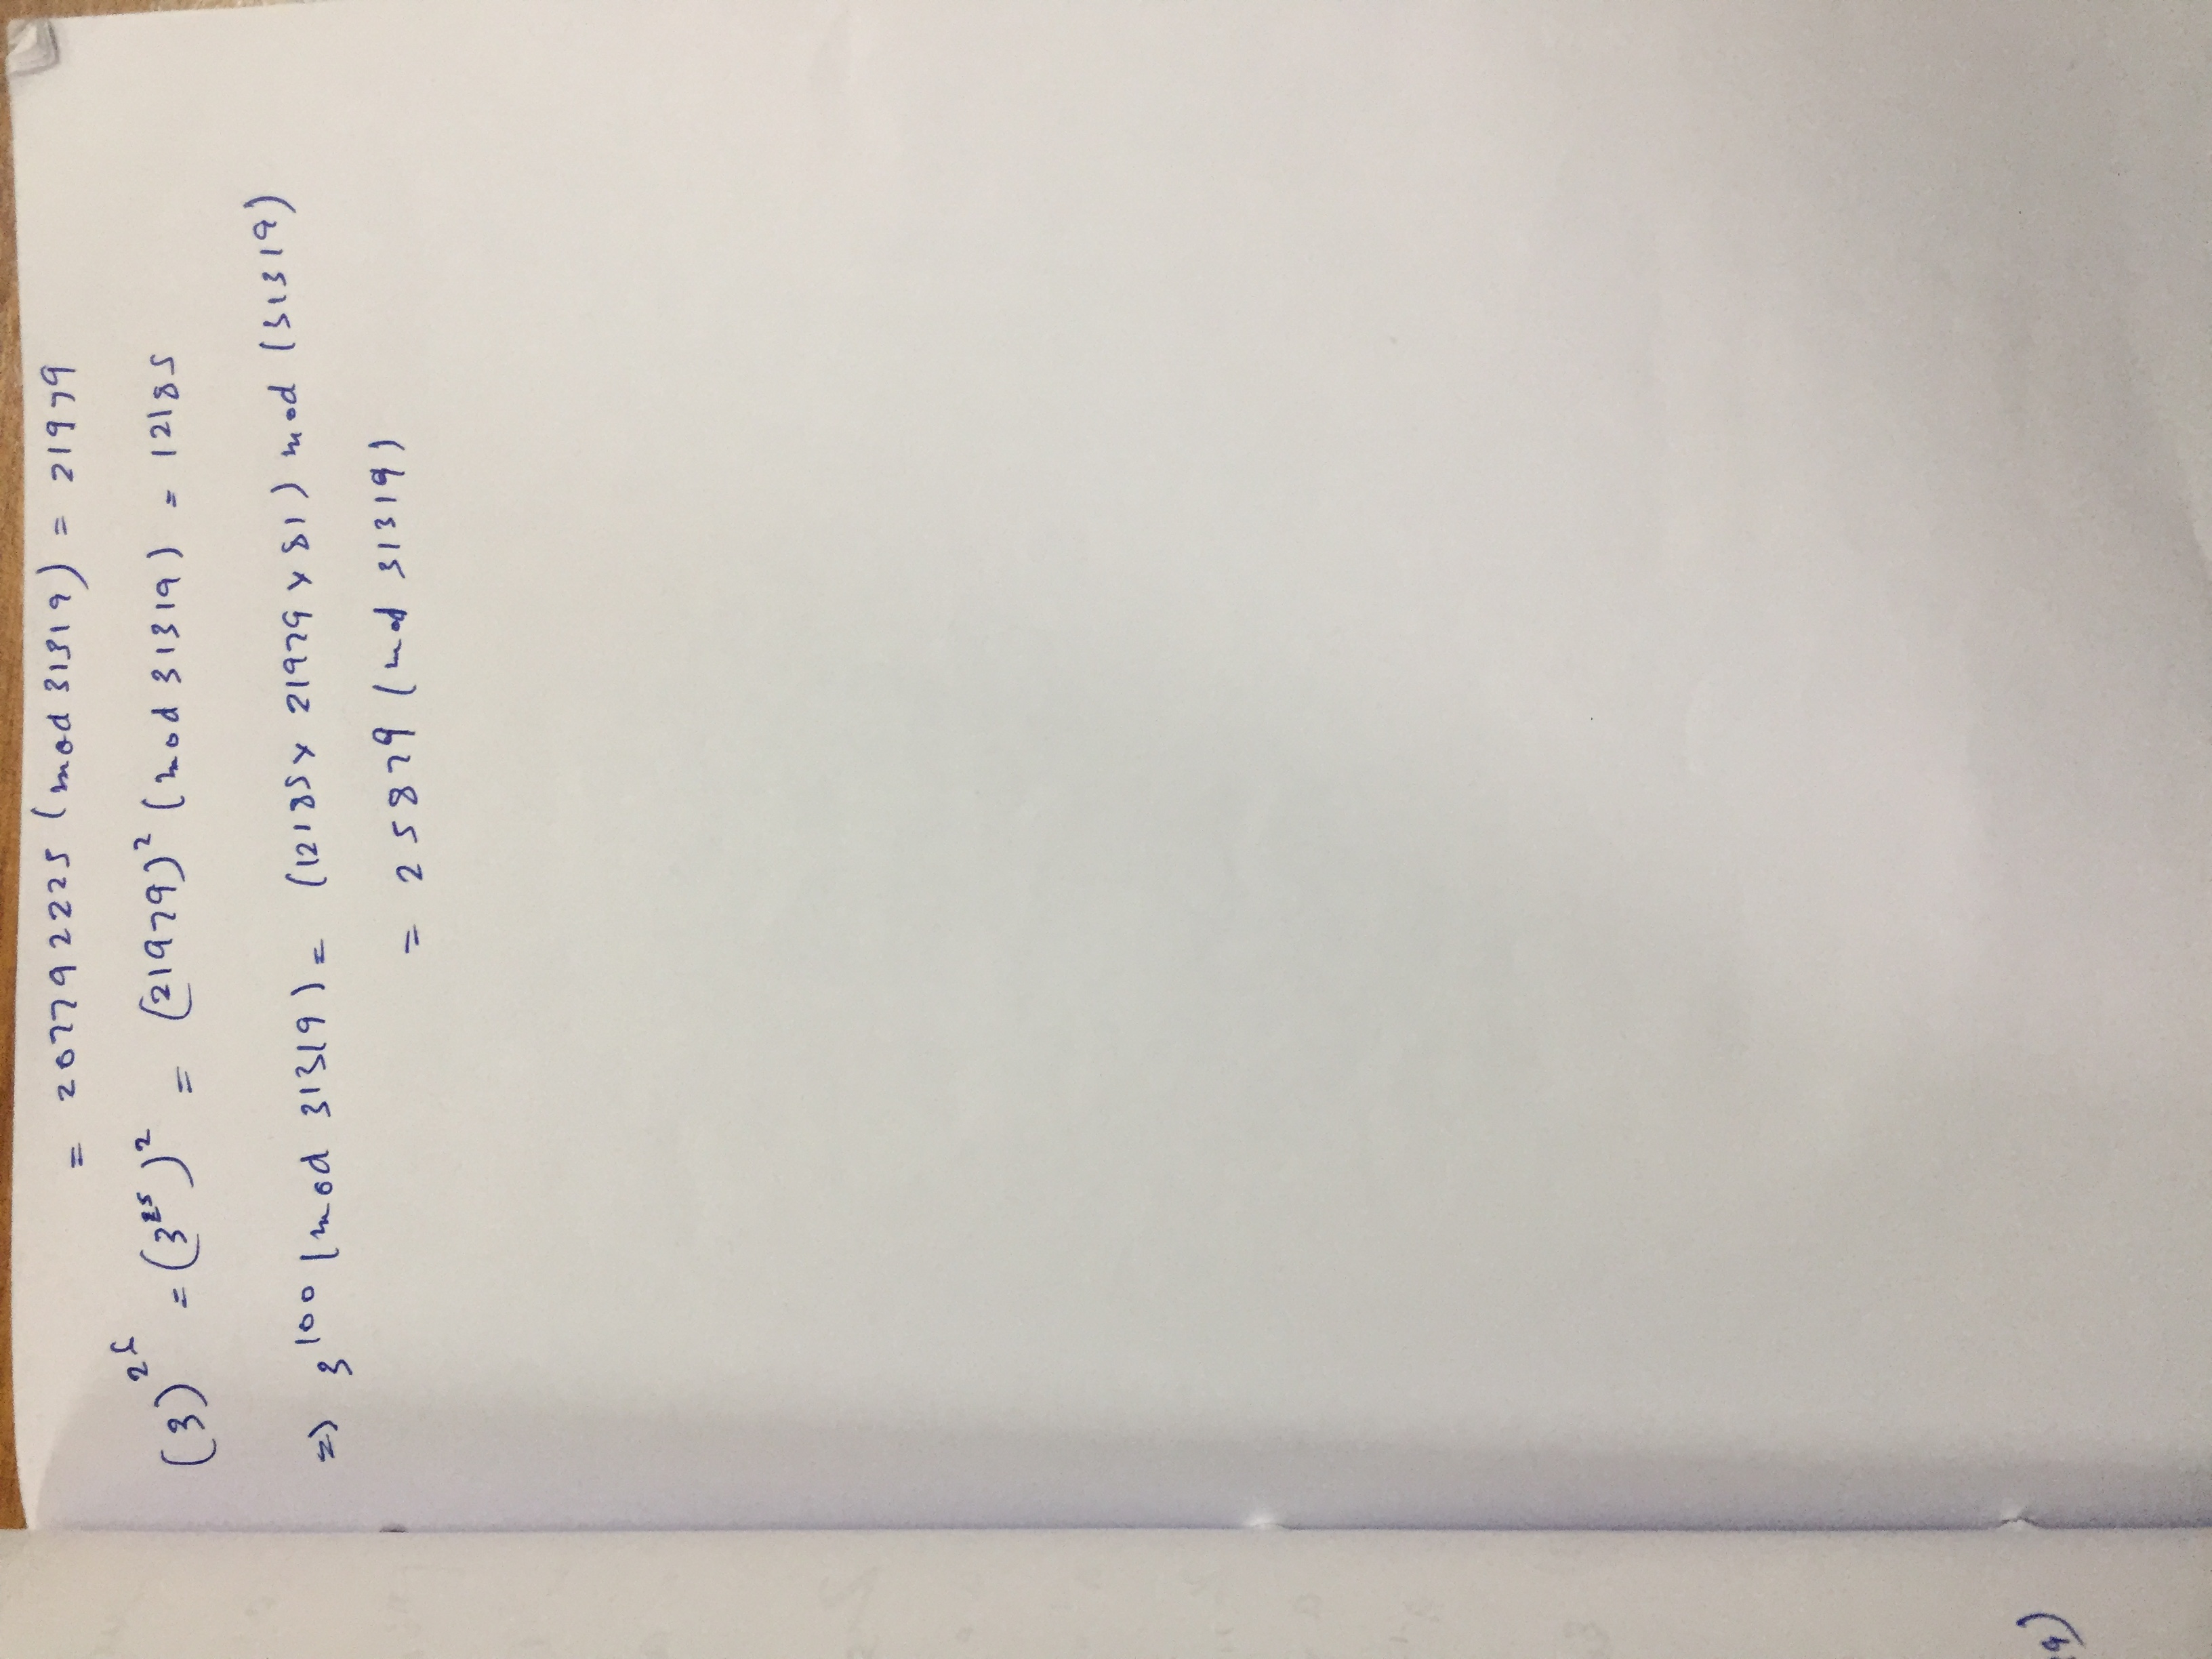 = 207792225 (mod 31319) = 21979
(3)^26 = (3^25)^2 = (21979)^2 (mod 31319) = 12185
=> 3^100 (mod 31319) = (12185 x 21979 x 81) mod (31319)
= 25879 (mod 31319)
9)